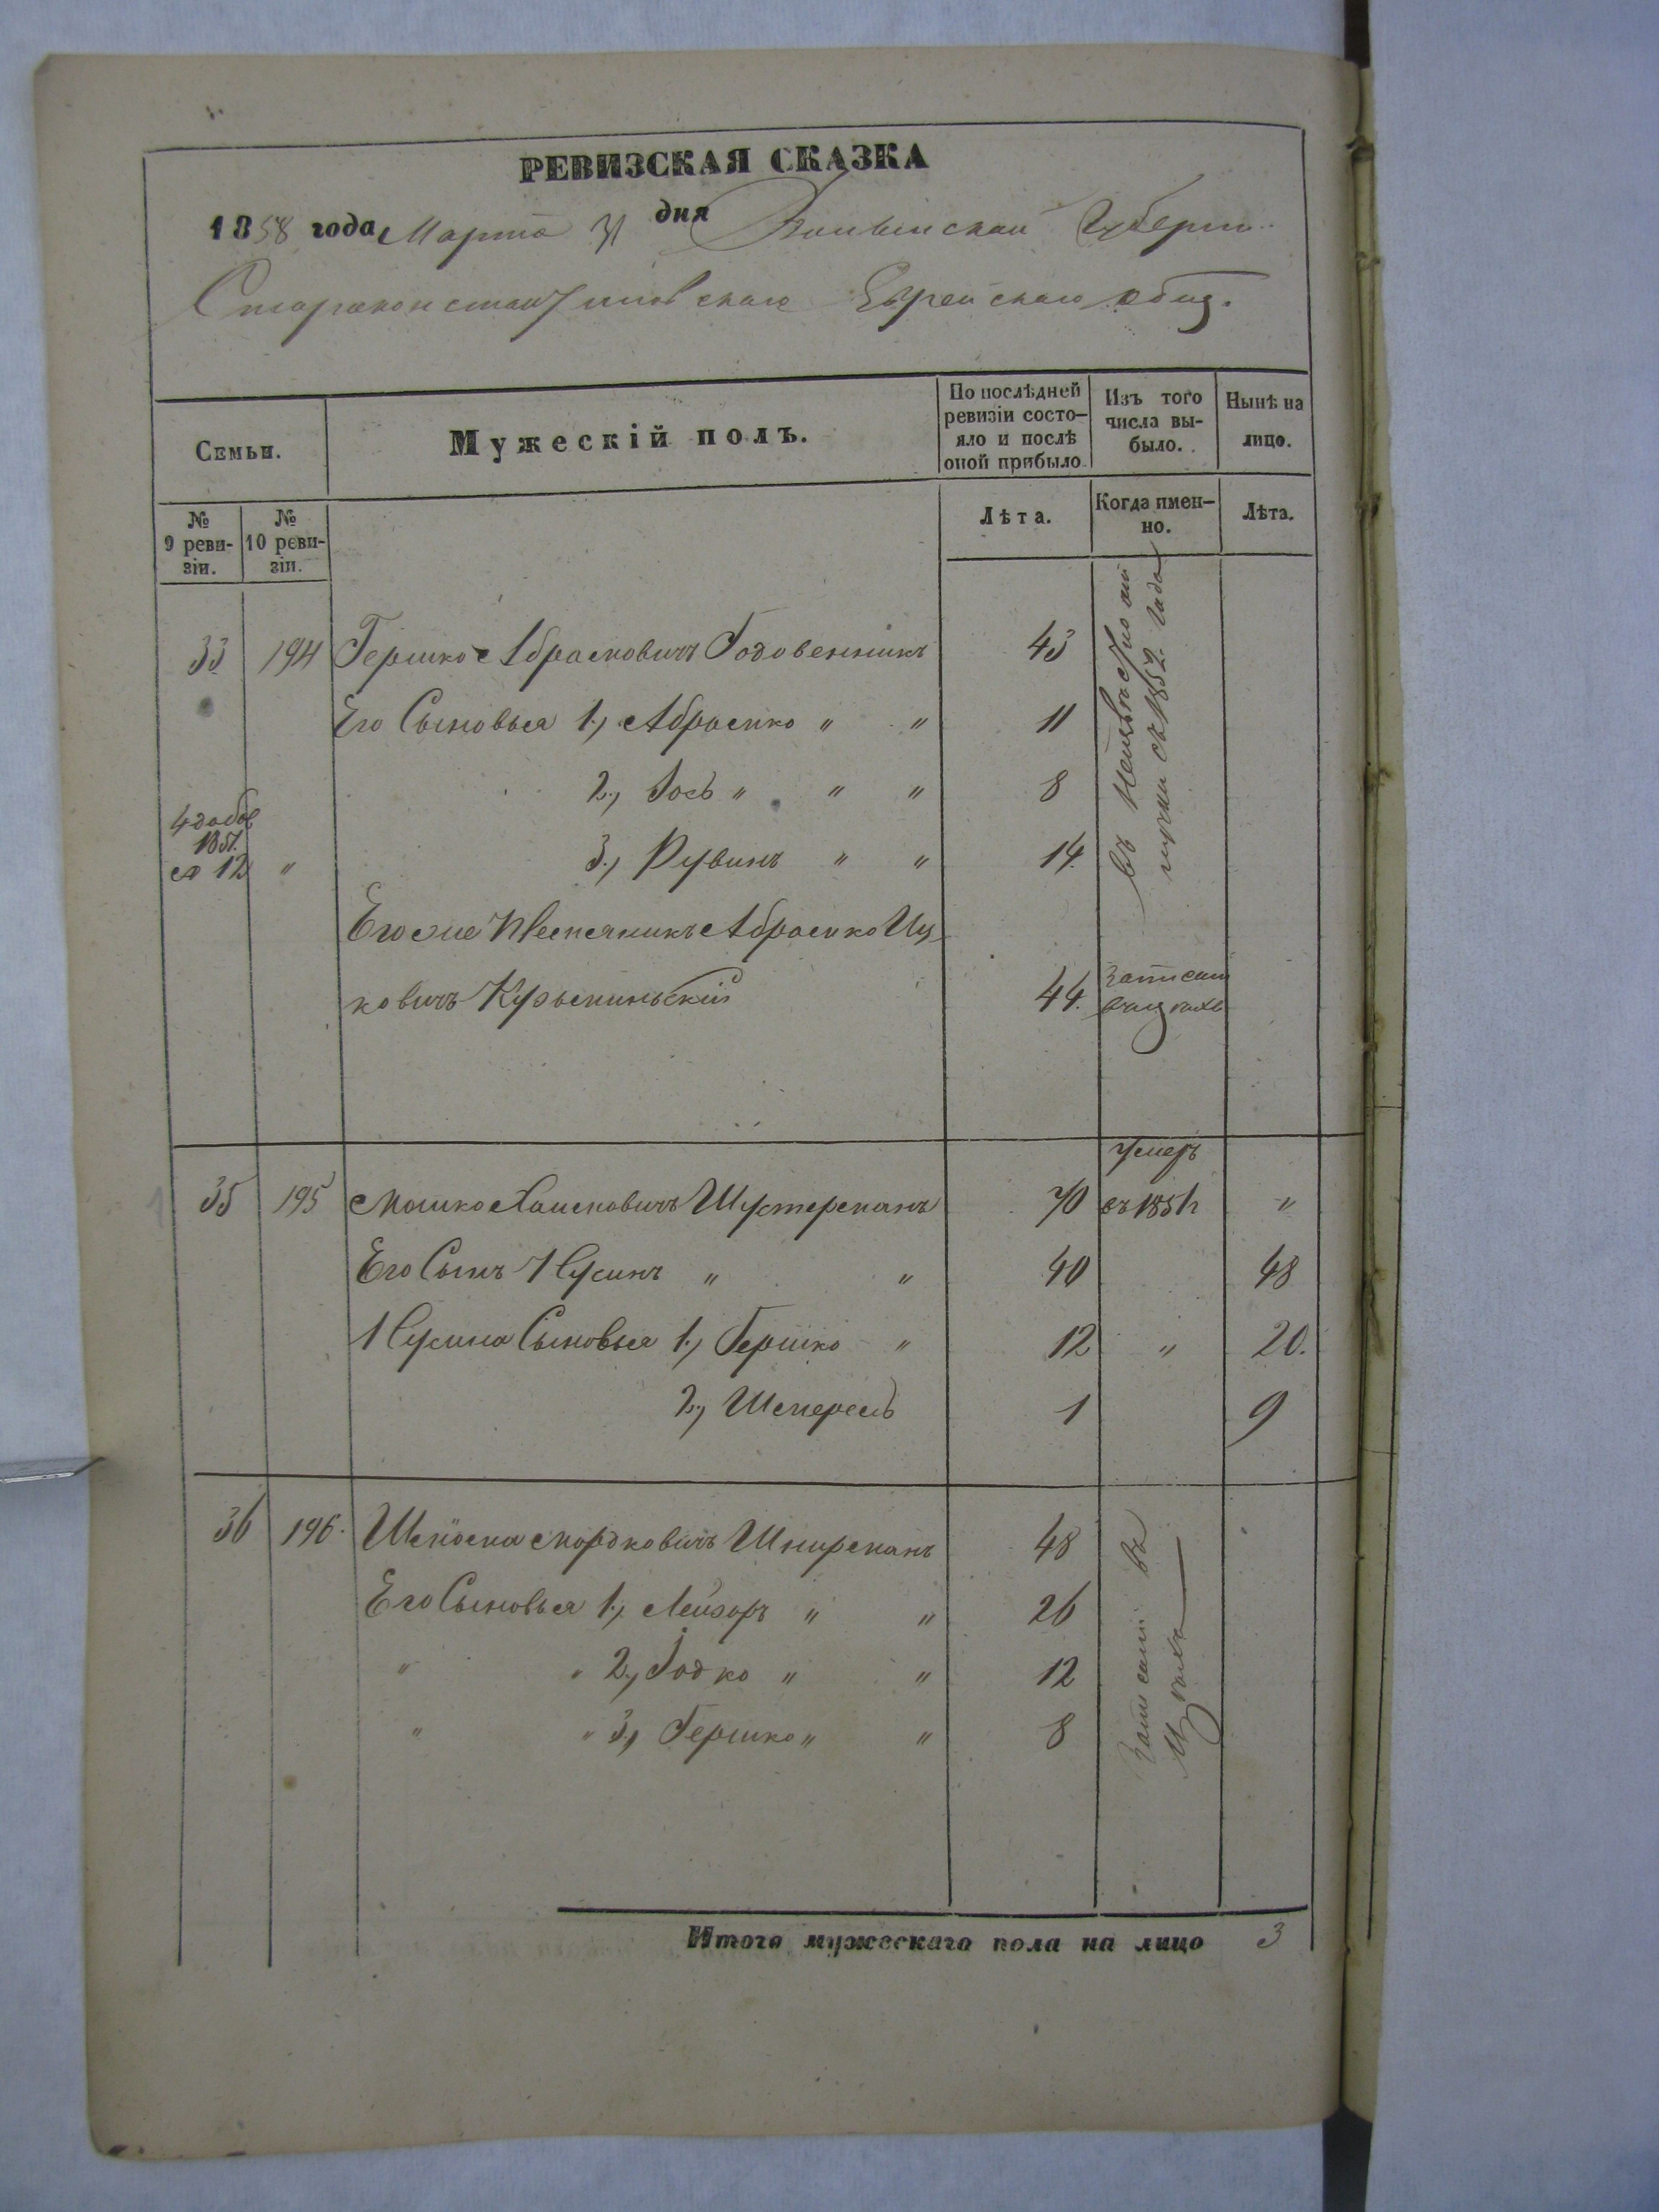 РЕВИЗСКАЯ СКАЗКА
1858 года Марта 31 дня Волынской Губерн.
Староконстантиновскаго Еврейскаго общ.
Семьи.
Мужескій полъ.
По послѣдней ревизіи состо-
яло и послѣ
оной прибыло.
Изъ того
числа вы-
было.
Нынѣ на
лицо.
№
9 реви-
зіи.
№
10 реви-
зіи.
Лѣта.
Когда имен-
но.
Лѣта.
33 194 Гершко Абрамовичъ Годовенникъ 43
Его Сыновья 1., Абрамко " " 11
2., Іось " " " 8
3., Рувинъ " " 14.
1851.
12 "
Его же Племянникъ Абрамко Иц
ковичъ 44.
въ
съ 1852 года
35 195 Мошко Хаимовичъ Шустерманъ 70 умеръ въ 1851 "
Его Сынъ Нусинъ " " 40 48
Нусина Сыновья 1., Гершко " 12 " 20.
2., Шмерель 1 9
36 196. Шліома Мордковичъ Шнирманъ 48
Его Сыновья 1., Лейзоръ " " 26
" " 2., Іодко " " 12
" " 3., Гершко " " 8
Итого мужескаго пола на лицо 3